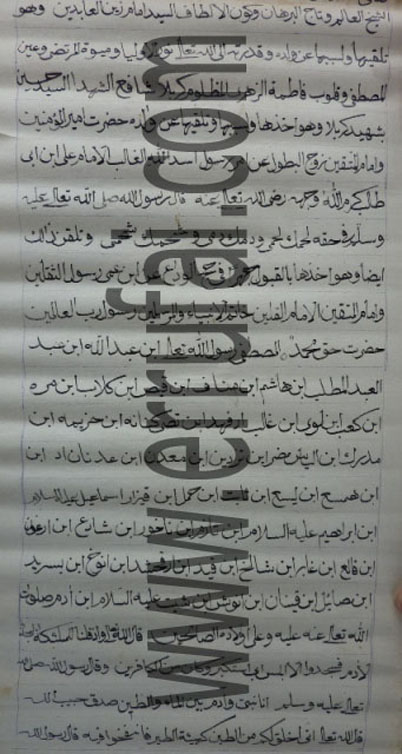 الشيخ العالم وتاج البرهان وكون الالطاف السيد امام زين العابدين وهو
تلقيها ولبسها عن والده وقدرته الى الله تعالى نور الاوليا وميوة المرتضى وعين
المصطفى وقلوب فاطمة الزهرى المظلوم كربلا شافع الشهدا السيد حسين
شهيد كربلا وهو اخذها ولبسها وتلقيها عن والده حضرت امير المؤمنين
وامام المتقين زوج البطول عن امر رسول اسد الله الغالب الامام على ابن ابى
طالب كرم الله وجهه رضى الله تعالى عنه قال رسول الله صلى الله تعالى عليه
وسلم فى حقه لحمك لحمى ودمك دمى وشحمك شحمى وتلقن ذالك
ايضا وهو اخذها بالقبول عن ابن عمى رسول الثقلين
وامام المتقين الامام القبلين خاتم الانبياء والمرسلين رسول رب العالمين
حضرت حق محمد المصطفى رسول الله تعالى ابن عبد الله ابن عبد
العبد المطلب ابن هاشم ابن مناف ابن قيص ابن كلاب ابن مره
ابن كعب ابن لوى ابن غالب ابن فهد ابن نضر كنانه ابن خزيمه ابن
مدرك ابن اليس مضر ابن نزد ابن معد ابن عدنان اد ابن
ابن همسع ابن يسع ابن ثابت ابن حمل ابن قيزار اسماعيل عليه السلام
ابن ابراهيم عليه السلام ابن ناخور ابن شايع ابن ارعون
ابن فالع ابن غابر ابن شالخ ابن قيد ابن ارفخشد ابن نوح ابن
ابن صايل ابن قينان ابن انوش ابن شيت عليه السلام ابن ادم صلوت
الله تعالى عنه عليه وعلى اولاده الصالحين قال الله تعالى واذ قلنا للملئكة
لادم فسجدوا الا ابليس ابى واستكبر وكان من الكافرين وقال رسول الله صلى
تعالى عليه وسلم انا نبى وادم بين الماء والطين صدق حبيب الله
قال الله تعالى انى اخلق لكم من الطين كهيئة الطير فانفخوا فيه قال رسول الله
www.erufai.com